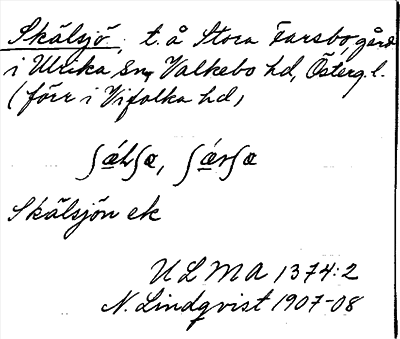 Skälsjö. t. å Stora Farsbo, gård
i Ulrika sn, Valkebo hd, Österg. l.
(förr i Vifolka hd,
Skälsjön ek
ULMA 1374:2
N. Lindqvist 1907-08